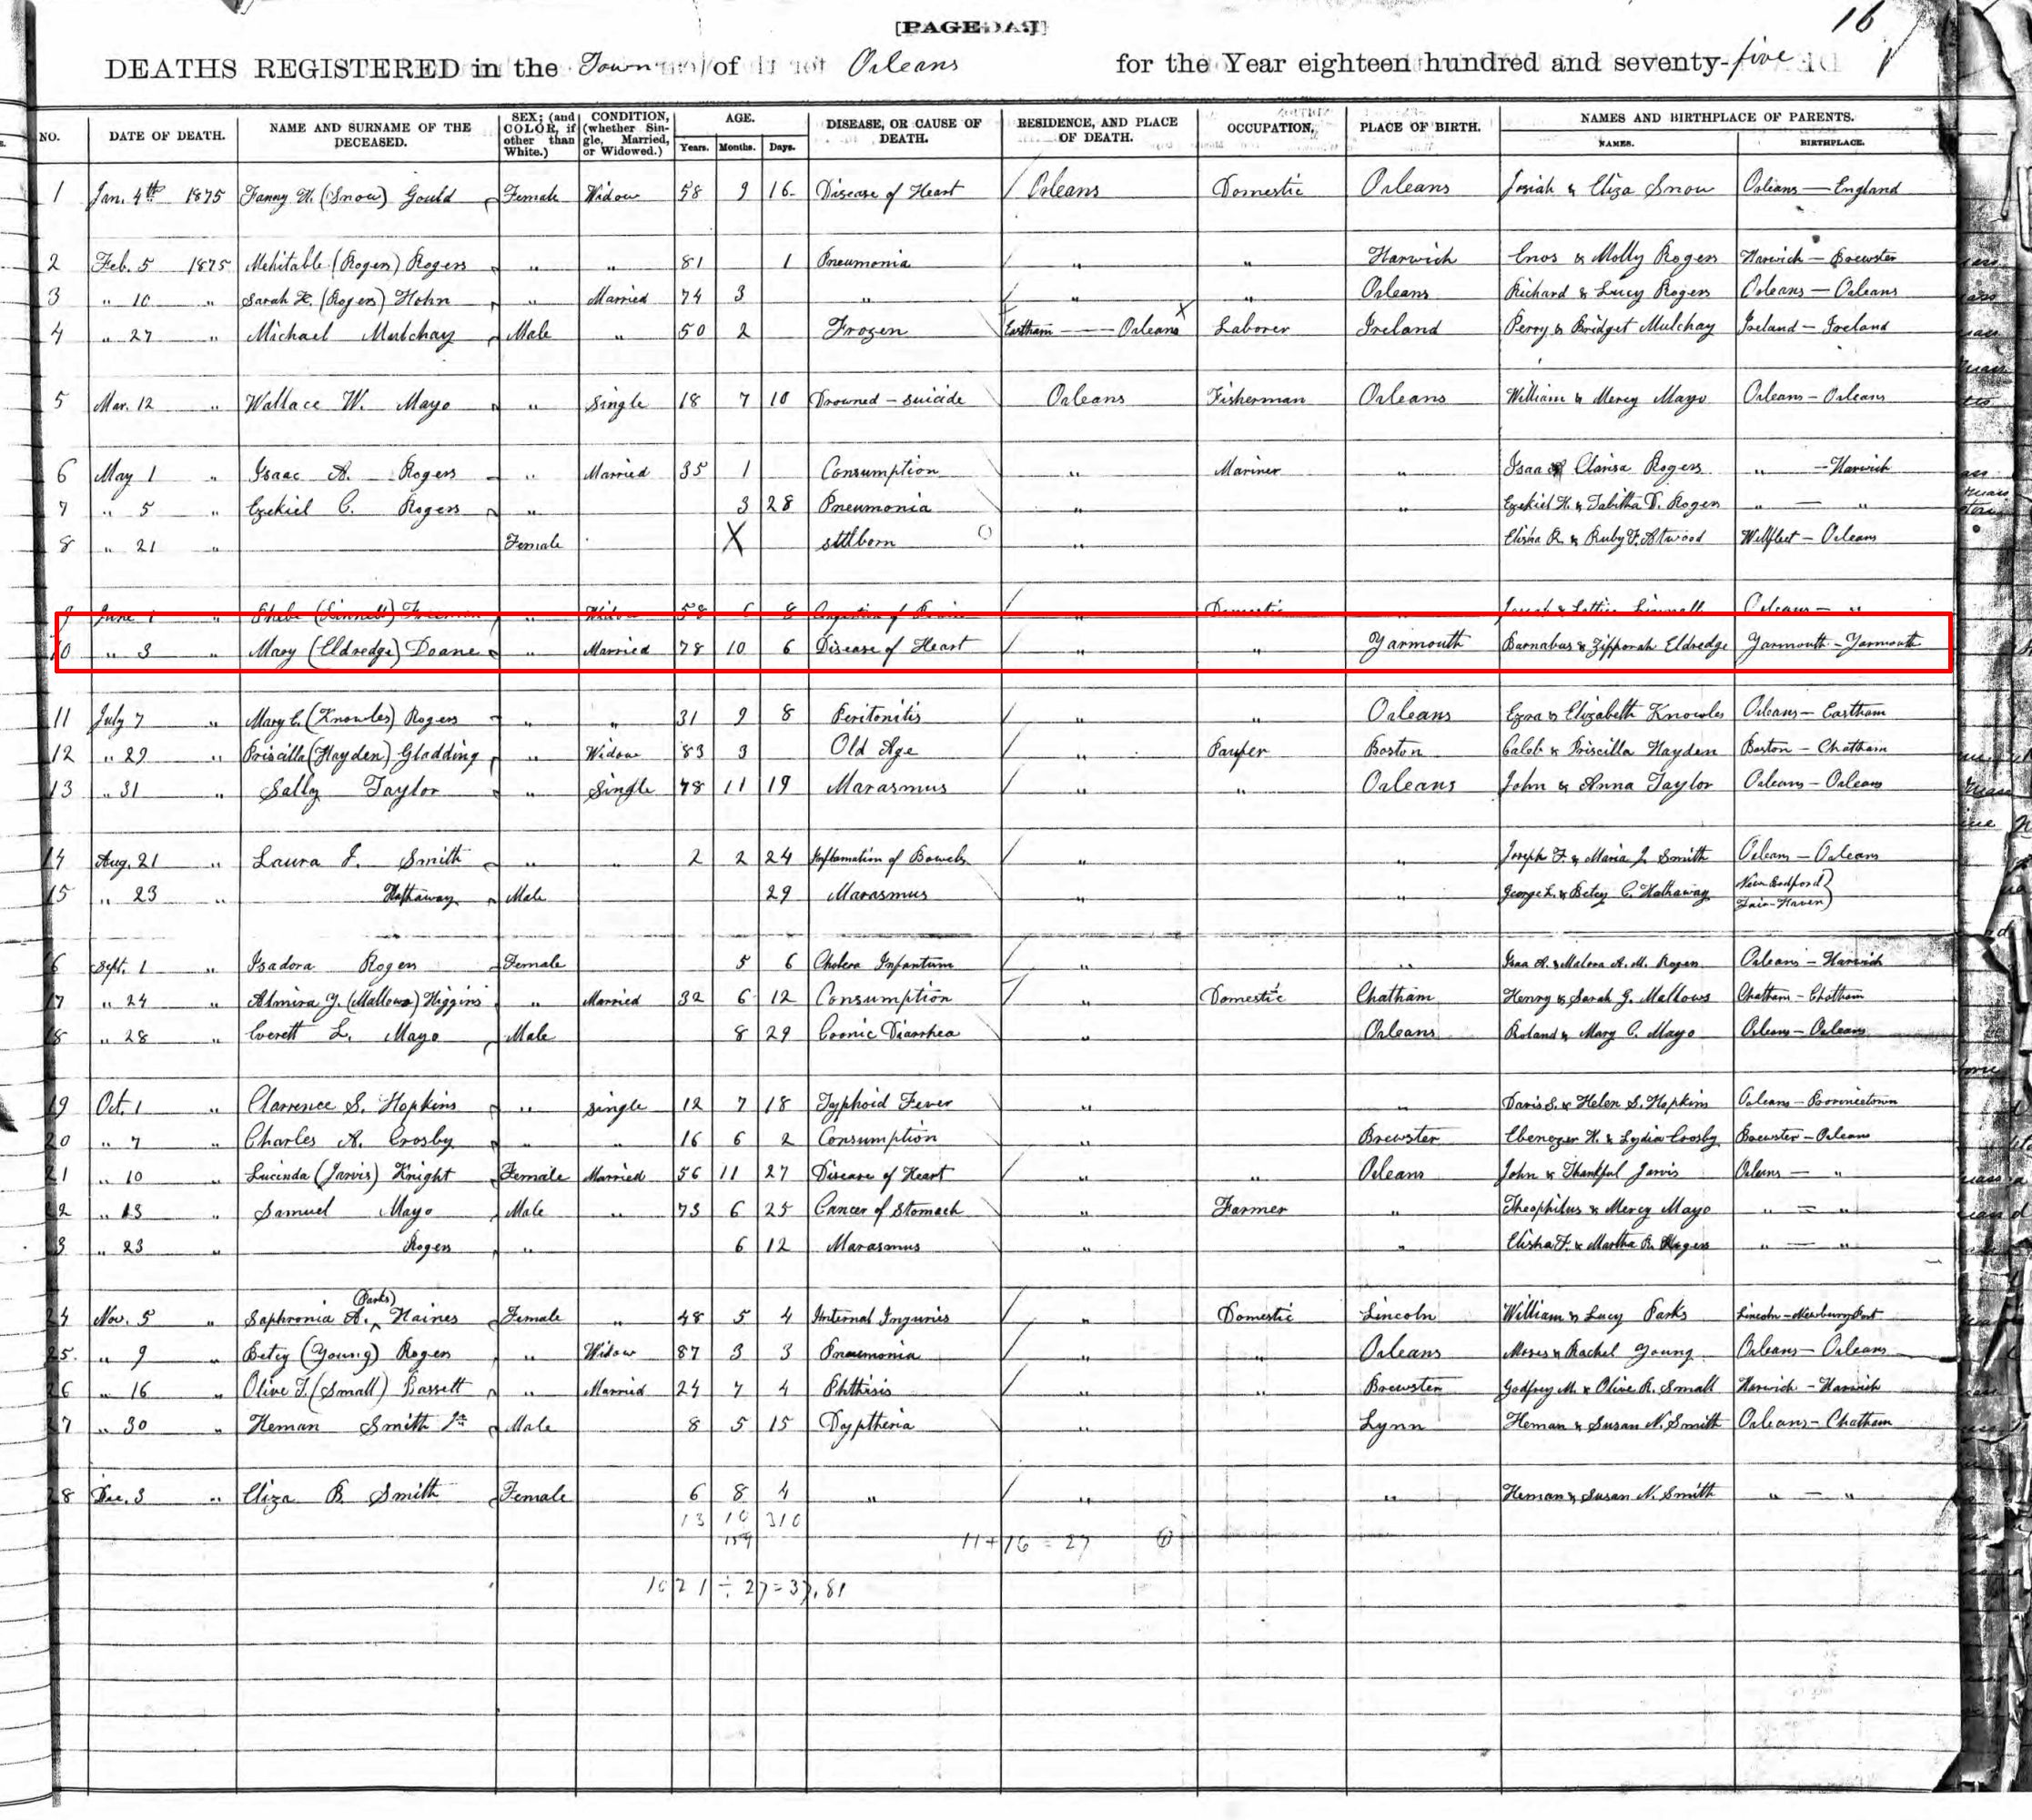 16
DEATHS REGISTERED in the Town of Orleans for the Year eighteen hundred and seventy-five
NO. DATE OF DEATH. NAME AND SURNAME OF THE DECEASED. SEX; (and COLOR, if other than White.) CONDITION, (whether Single, Married, or Widowed.) AGE. Years. Months. Days. DISEASE, OR CAUSE OF DEATH. RESIDENCE, AND PLACE OF DEATH. OCCUPATION. PLACE OF BIRTH. NAMES AND BIRTHPLACE OF PARENTS. NAMES. BIRTHPLACE.
1 Jan. 4th 1875 Fanny H. (Snow) Gould Female Widow 58 9 16 Disease of Heart Orleans Domestic Orleans Josiah & Eliza Snow Orleans — England
2 Feb. 5 1875 Mehitable (Rogers) Rogers " " 81 1 Pneumonia " " Harwich Enos & Molly Rogers Harwich — Brewster
3 " 10 " Sarah (Rogers) " Married 74 3 " " " Orleans Richard & Lucy Rogers Orleans — Orleans
4 " 27 " Michael Mulchay Male " 50 2 Frozen Eastham — Orleans X Laborer Ireland Perry & Bridget Mulchay Ireland — Ireland
5 Mar. 12 " Wallace W. Mayo " Single 18 7 10 Drowned — suicide Orleans Fisherman Orleans William & Mercy Mayo Orleans — Orleans
6 May 1 " Isaac A. Rogers " Married 35 1 Consumption " Mariner " Isaac & Clarisa Rogers " — Harwich
7 " 5 " Ezekiel C. Rogers " 3 28 Pneumonia " " Ezekiel H. & Tabitha D. Rogers " — "
8 " 21 " Female X stillborn O " Elisha R. & Ruby F. Atwood Wellfleet — Orleans
9 June 1 " Phebe (Linnell) Freeman " Widow 58 6 8 Congestion of " Domestic Joseph & Lettice Linnell Orleans — "
10 " 3 " Mary (Eldredge) Doane " Married 78 10 6 Disease of Heart " " Yarmouth Barnabas & Zipporah Eldredge Yarmouth — Yarmouth
11 July 7 " Mary E. (Knowles) Rogers " " 31 9 8 Peritonitis " " Orleans Ezra & Elizabeth Knowles Orleans — Eastham
12 " 29 " Priscilla (Hayden) Gladding " Widow 83 3 Old Age " Pauper Boston Caleb & Priscilla Hayden Boston — Chatham
13 " 31 " Sally Taylor " Single 78 11 19 Marasmus " " Orleans John & Anna Taylor Orleans — Orleans
14 Aug. 21 " Laura J. Smith " " 2 2 24 Inflamation of Bowels " " Joseph F. & Maria J. Smith Orleans — Orleans
15 " 23 " Hathaway Male 29 Marasmus " " George L. & Betsy C. Hathaway New Bedford Fair-Haven
6 Sept. 1 " Isadora Rogers Female 5 6 Cholera Infantum " " Isaa A. & A. M. Rogers Orleans — Harwich
17 " 24 " Almira Y. (Mallows) Higgins " Married 32 6 12 Consumption " Domestic Chatham Henry & Sarah G. Mallows Chatham — Chatham
18 " 28 " Everett L. Mayo Male 8 29 Cronic Diarrhea " Orleans Roland & Mary C. Mayo Orleans — Orleans
19 Oct. 1 " Clarrence S. Hopkins " Single 12 7 18 Typhoid Fever " " Davis S. & Helen S. Hopkins Orleans — Provincetown
20 " 7 " Charles A. Crosby " " 16 6 2 Consumption " Brewster Ebenezer H. & Lydia Crosby Brewster — Orleans
21 " 10 " Lucinda (Jarvis) Knight Female Married 56 11 27 Disease of Heart " " Orleans John & Thankful Jarvis Orleans — "
22 " 13 " Samuel Mayo Male " 73 6 25 Cancer of Stomach " Farmer " Theophilus & Mercy Mayo " — "
3 " 23 " Rogers " 6 12 Marasmus " " Elisha F. & Martha R. Rogers " — "
24 Nov. 5 " Saphronia A. (Parks) Haines Female " 48 5 4 Internal Injuries " Domestic Lincoln William & Lucy Parks Lincoln — Newburyport
25 " 9 " Betsy (Young) Rogers " Widow 87 3 3 Pneumonia " " Orleans Moses & Rachel Young Orleans — Orleans
26 " 16 " Olive F. (Small) Bassett " Married 24 7 4 Phthisis " " Brewster Godfrey M. & Olive R. Small Harwich — Harwich
27 " 30 " Heman Smith Jr. Male 8 5 15 Dyptheria " Lynn Heman & Susan N. Smith Orleans — Chatham
28 Dec. 3 " Eliza B. Smith Female 6 8 4 " " " Heman & Susan N. Smith " — "
13 10 310
159 11 + 16 = 27
1021 ÷ 27 = 37.81